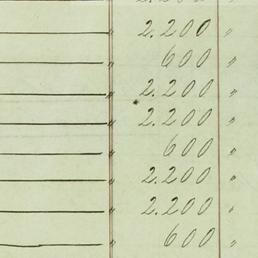 " 2.200 "
" 600 "
" 2.200 "
" 2.200 "
" 600 "
" 2.200 "
" 2.200 "
" 600 "